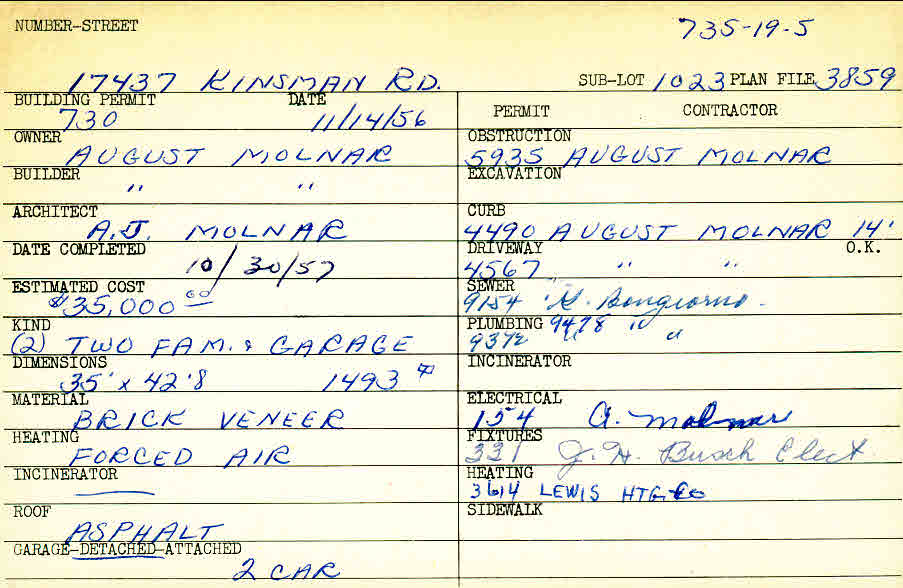 NUMBER-STREET 735-19-5
17437 KINSMAN RD. SUB-LOT 1023 PLAN FILE 3859
BUILDING PERMIT DATE
730 11/14/56
OWNER
AUGUST MOLNAR
BUILDER
" "
ARCHITECT
A.J. MOLNAR
DATE COMPLETED
10/30/57
ESTIMATED COST
$35,000 00
KIND
(2) TWO FAM. & GARAGE
DIMENSIONS
35' x 42'8 1493
MATERIAL
BRICK VENEER
HEATING
FORCED AIR
INCINERATOR
ROOF
ASPHALT
GARAGE-DETACHED-ATTACHED
2 CAR
PERMIT CONTRACTOR
OBSTRUCTION
5935 AUGUST MOLNAR
EXCAVATION
CURB
4490 AUGUST MOLNAR 14'
DRIVEWAY O.K.
4567 " "
SEWER
9154 G. Bongiorno.
PLUMBING 9478 "
9372 " "
INCINERATOR
ELECTRICAL
154 A. Molnar
FIXTURES
331 J. H. Busch Elect.
HEATING
3614 LEWIS HTG. Co
SIDEWALK